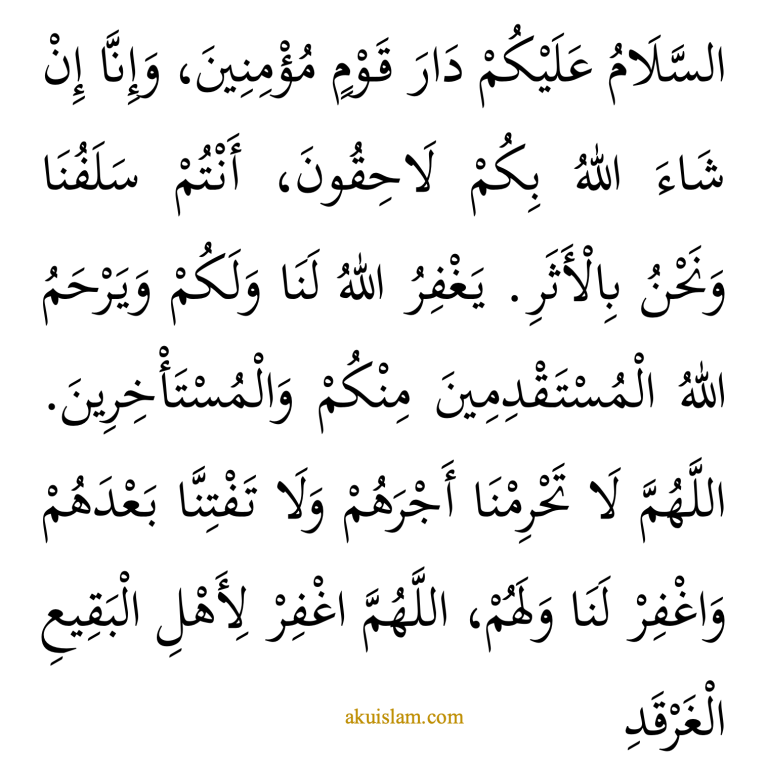 السَّلَامُ عَلَيْكُمْ دَارَ قَوْمٍ مُؤْمِنِينَ، وَإِنَّا إِنْ
شَاءَ اللهُ بِكُمْ لَاحِقُونَ، أَنْتُمْ سَلَفُنَا
وَنَحْنُ بِالْأَثَرِ. يَغْفِرُ اللهُ لَنَا وَلَكُمْ وَيَرْحَمُ
اللهُ الْمُسْتَقْدِمِينَ مِنْكُمْ وَالْمُسْتَأْخِرِينَ.
اللَّهُمَّ لَا تَحْرِمْنَا أَجْرَهُمْ وَلَا تَفْتِنَّا بَعْدَهُمْ
وَاغْفِرْ لَنَا وَلَهُمْ، اللَّهُمَّ اغْفِرْ لِأَهْلِ الْبَقِيعِ
الْغَرْقَدِ
akuislam.com